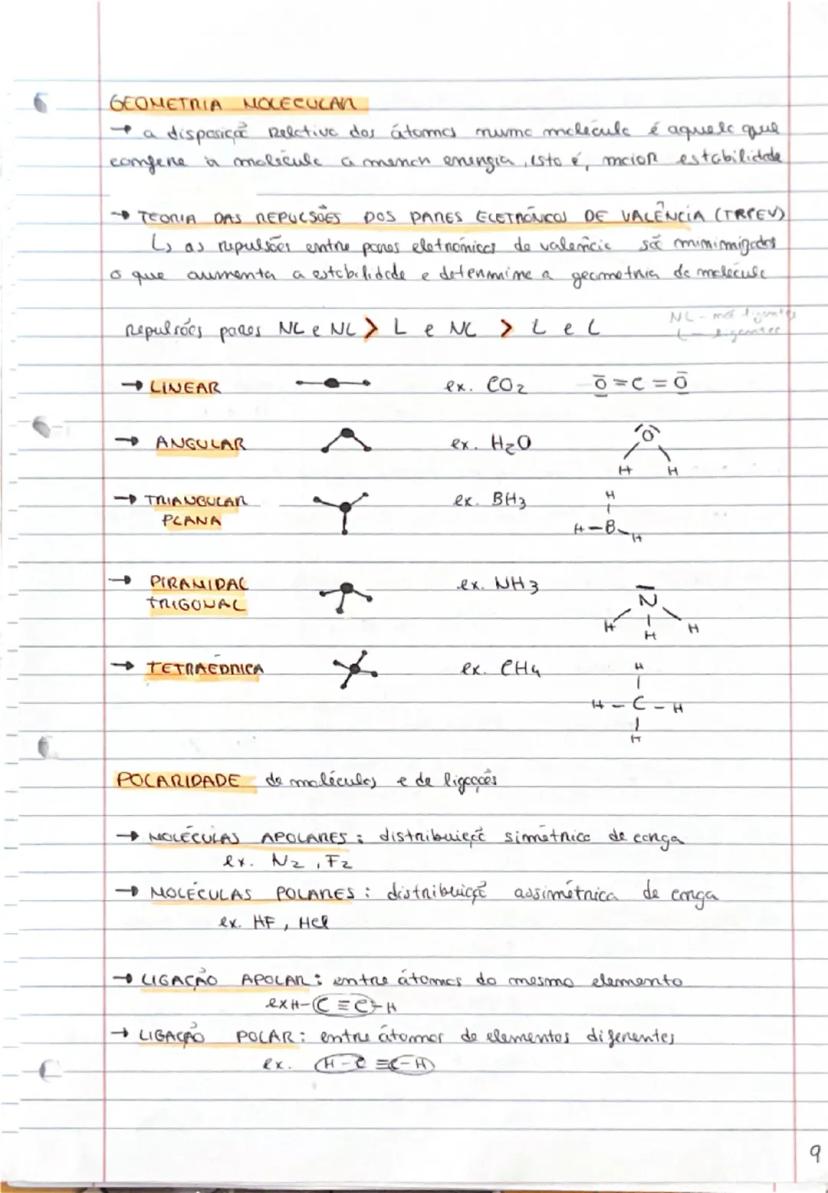 GEOMETRIA MOLECULAR
→ a disposição relativa dos átomos numa molécula é aquela que
confere à molécula a menor energia, isto é, maior estabilidade
→ TEORIA DAS REPULSÕES DOS PARES ELETRÓNICOS DE VALÊNCIA (TRPEV)
↳ as repulsões entre pares eletrónicos de valência são minimizadas
o que aumenta a estabilidade e determina a geometria da molécula
Repulsões pares NL e NL > L e NL > L e L
NL - não ligantes
L - ligantes
→ LINEAR ex. CO2 O=C=O
→ ANGULAR ex. H2O O
H H
→ TRIANGULAR ex. BH3 H
PLANA H-B-H
→ PIRAMIDAL ex. NH3 N
TRIGONAL H H H
→ TETRAÉDRICA ex. CH4 H
H - C - H
H
POLARIDADE de moléculas e de ligações
→ MOLÉCULAS APOLARES: distribuição simétrica de carga
ex. N2, F2
→ MOLÉCULAS POLARES: distribuição assimétrica de carga
ex. HF, HCl
→ LIGAÇÃO APOLAR: entre átomos do mesmo elemento
ex H-C≡C-H
→ LIGAÇÃO POLAR: entre átomos de elementos diferentes
ex. H-C≡C-H
9